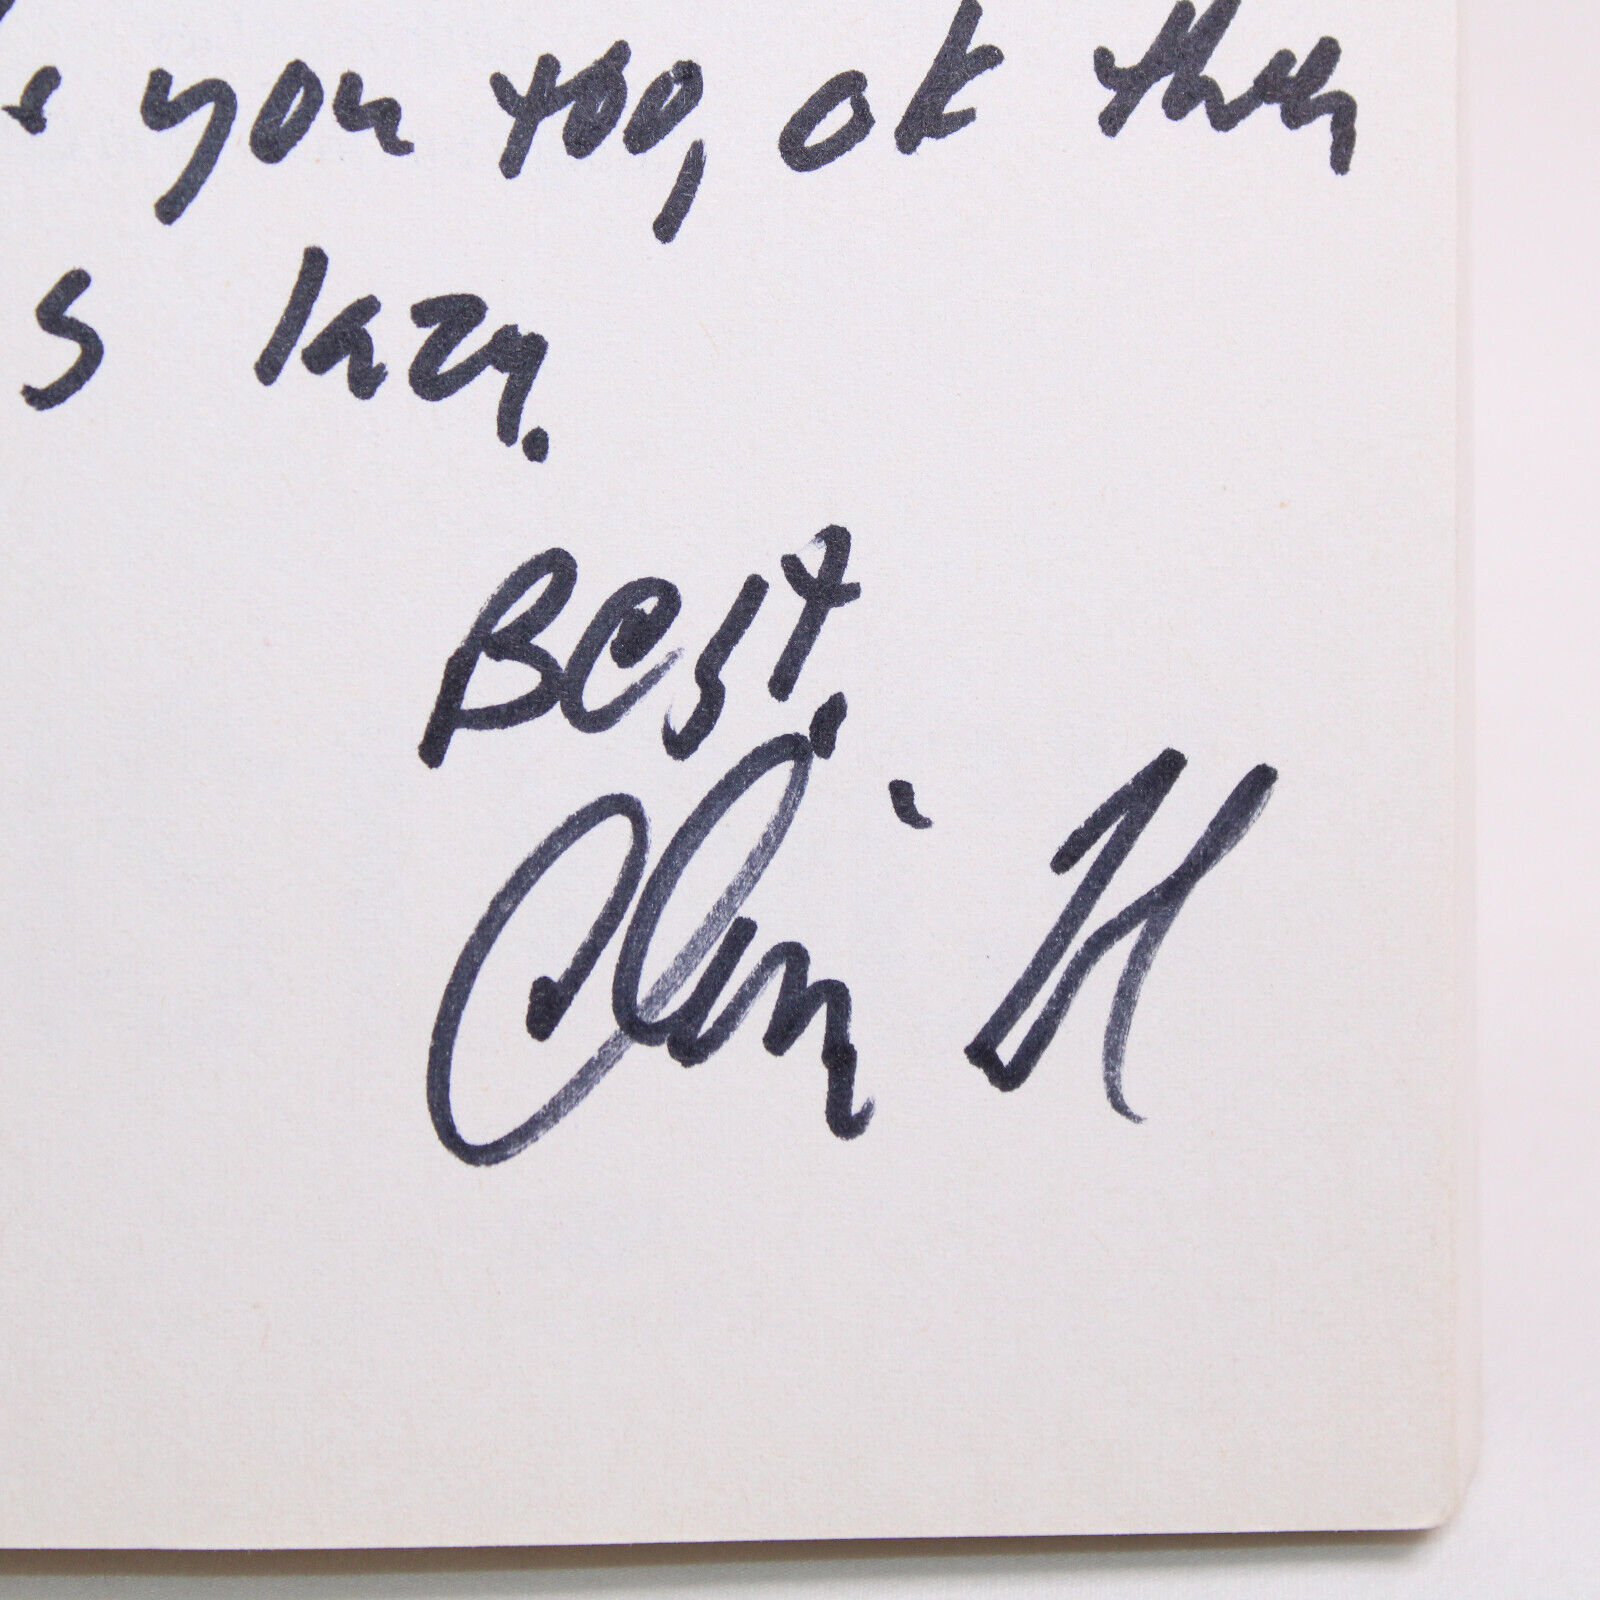 you too, ok then
s lazy.
Best,